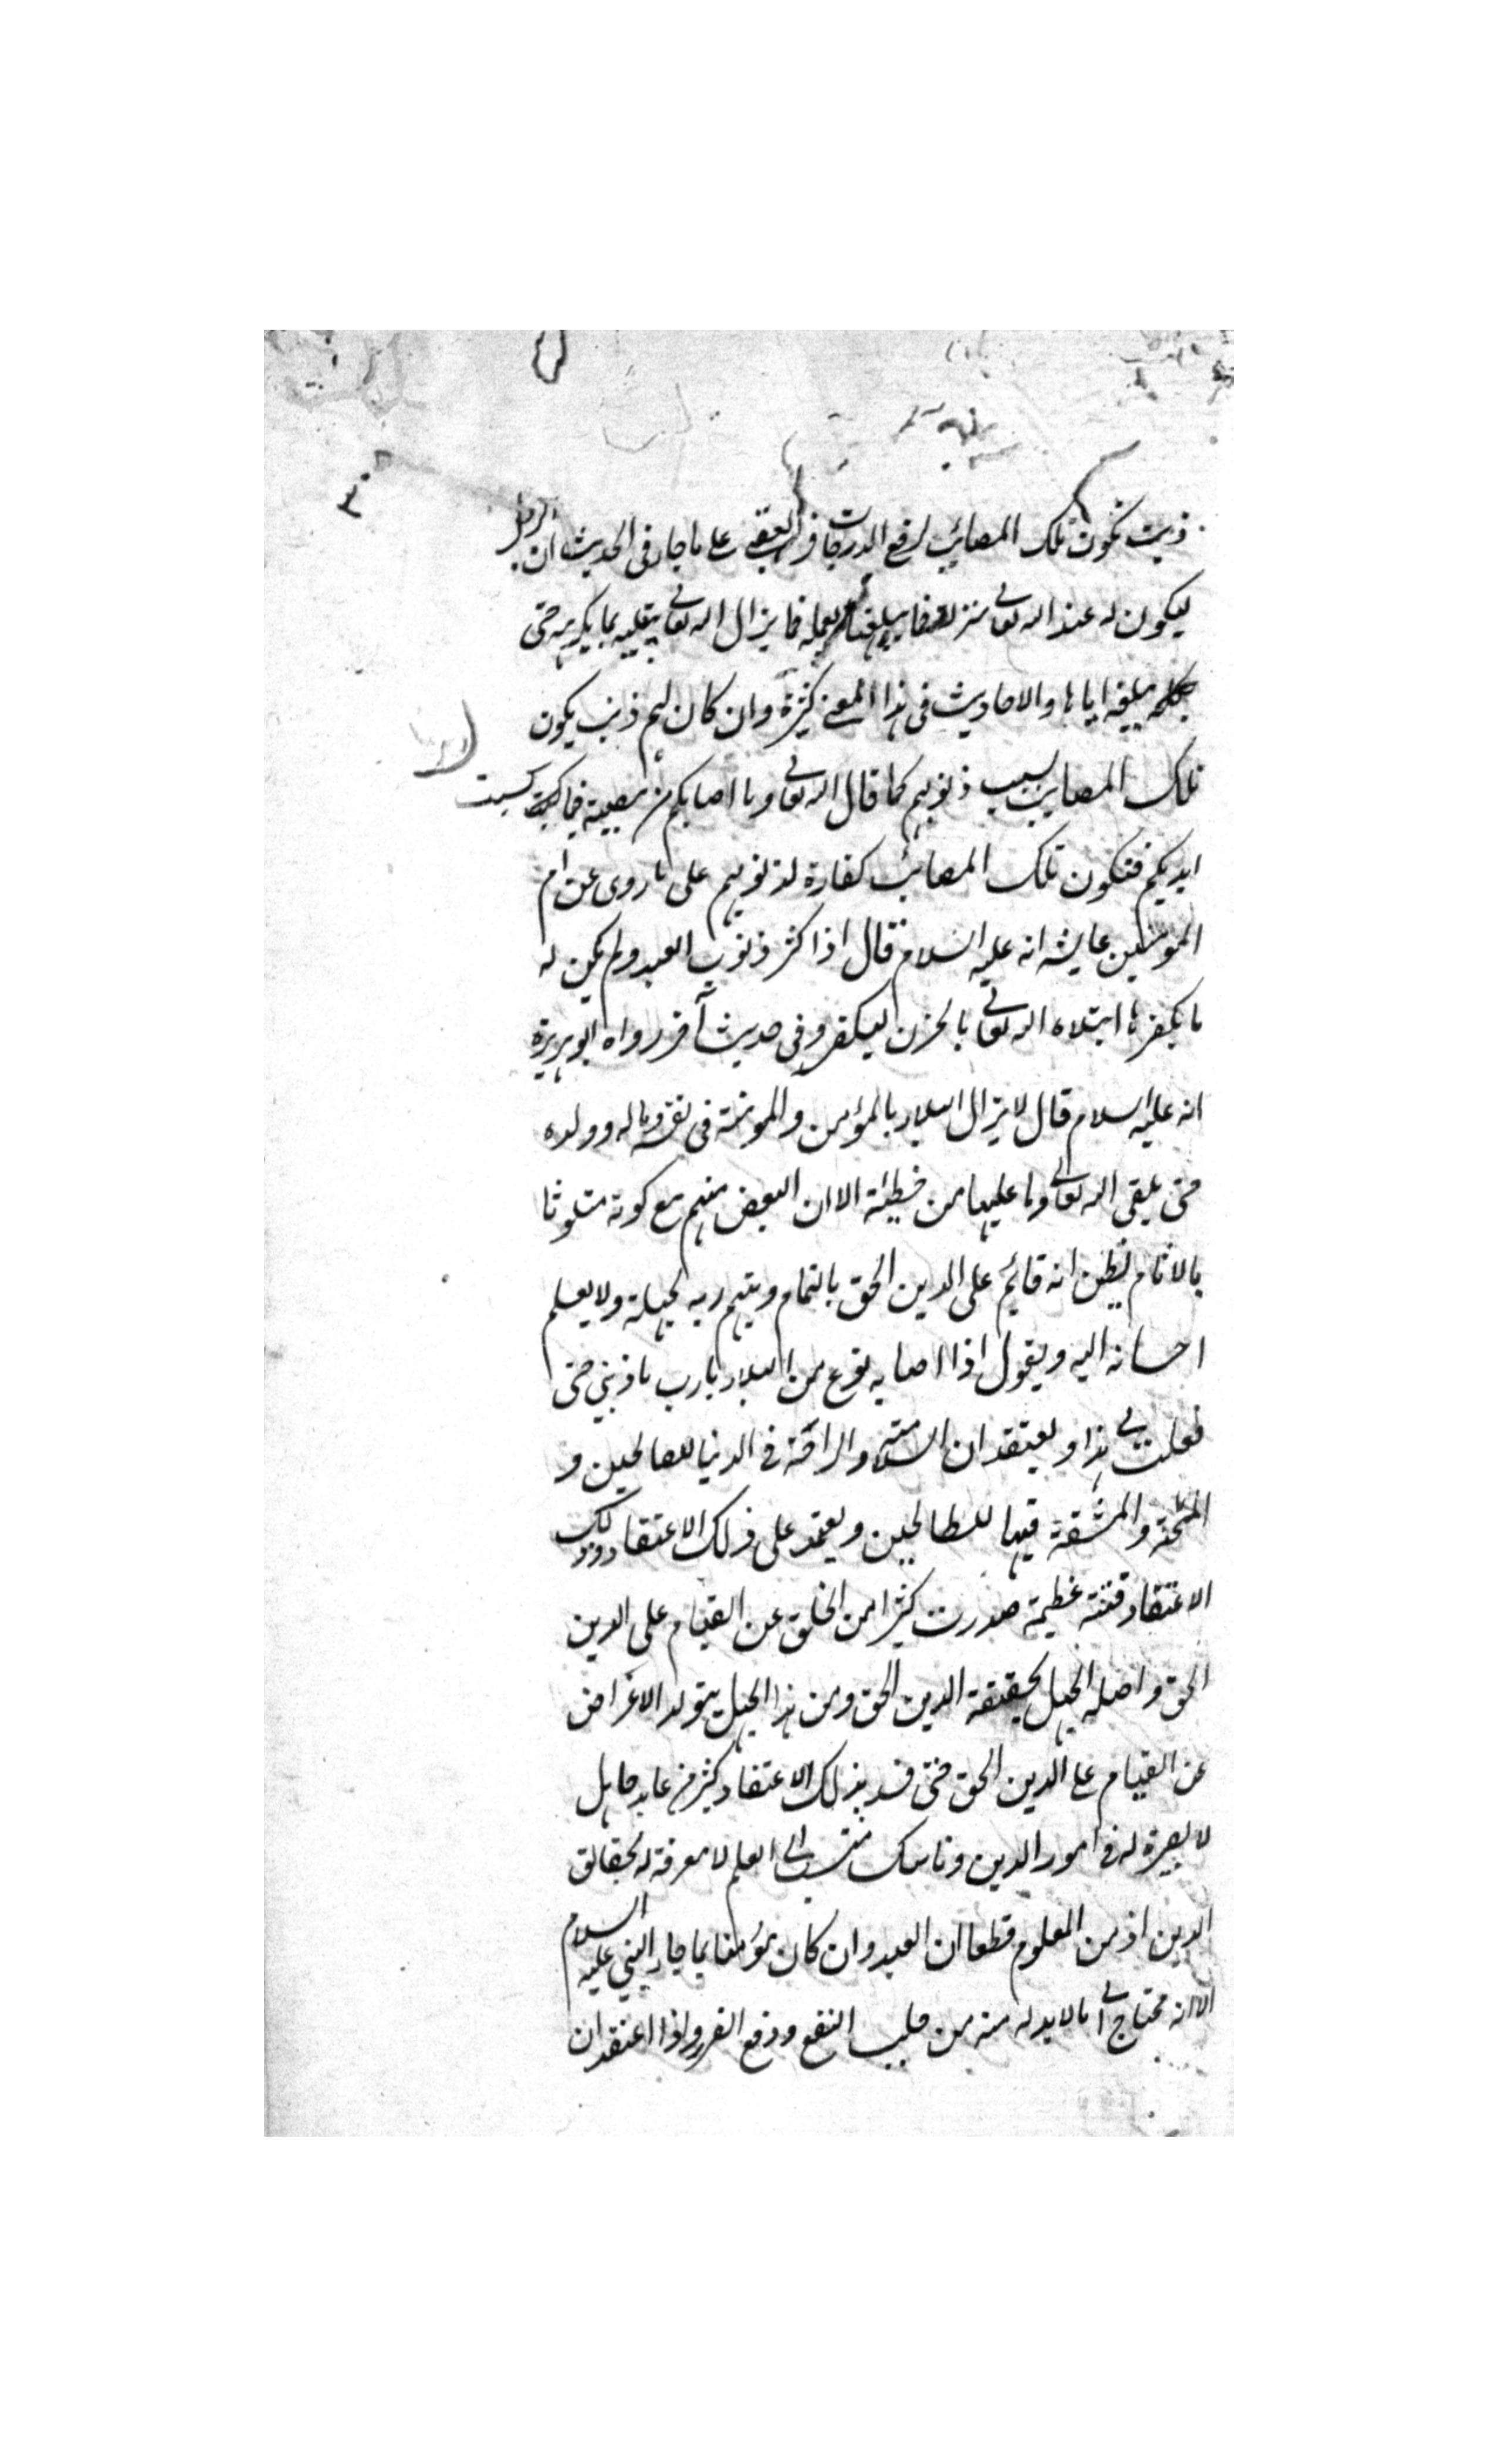 ٣
ذنب تكون تلك المصائب لرفع الدرجات في العقبى على ما جاء في الحديث ان الرجل
ليكون له عند الله تعالى منزلة فما يبلغها بعمله فما يزال الله تعالى يبتليه بما يكره حتى
يبلغه اياها والاحاديث في هذا المعنى كثيرة وان كان لهم ذنب يكون
تلك المصايب بسبب ذنوبهم كما قال الله تعالى وما اصابكم من مصيبة فبما كسبت
ايديكم فتكون تلك المصائب كفارة لذنوبهم على ما روى عن ام
المومنين عايشه انه عليه السلام قال اذا كثر ذنوب العبد ولم يكن له
ما يكفرها ابتلاه الله تعالى بالحزن ليكفر وفى حديث آخر رواه ابو هريرة
انه عليه السلام قال لا يزال البلاء بالمؤمن والمومنة في نفسه وماله وولده
حتى يلقى الله تعالى وما عليهما من خطيئة الا ان البعض منهم مع كونه متلوثا
بالاثام يظن انه قائم على الدين الحق بالتمام ويتهم ربه لجهله ولا يعلم
احسانه اليه ويقول اذا اصابه نوع من البلاء يارب ما ذنبي حتى
فعلت بى هذا ويعتقد ان السلامة والراحة في الدنيا للصالحين و
المحنة والمشقة فيها للطالحين ويعتمد على ذلك الاعتقاد وذلك
الاعتقاد فتنة عظيمة صدرت كثيرا من الخلق عن القيام على الدين
الحق واصله الجهل بحقيقة الدين الحق ومن هذا الجهل يتولد الاعراض
عن القيام على الدين الحق حتى فسد بذلك الاعتقاد كثير من عابد جاهل
لا بصيرة له في امور الدين وناسك منتسب الى العلم لا معرفة له بحقائق
الدين اذ من المعلوم قطعا ان العبد وان كان مؤمنا بما جاء النبي عليه السلام
الا انه محتاج الى ما لابد له منه من جلب النفع ودفع الضرر واذا اعتقد ان